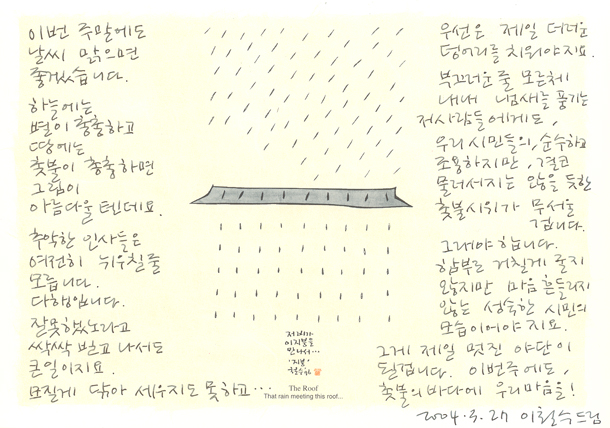 이번 주말에도
날씨 맑으면
좋겠습니다.
하늘에는
별이 총총하고
땅에는
촛불이 총총하면
그림이
아름다울 텐데요.
추악한 인사들은
여전히 뉘우칠 줄
모릅니다.
다행입니다.
잘못했노라고
싹싹 빌고 나서도
큰일이지요.
모질게 닦아 세우지도 못하고…
저 비가
이 지붕을
만나서…
'지붕'
철수
The Roof
That rain meeting this roof...
우선은 제일 더러운
덩어리를 치워야지요.
부끄러운 줄 모른체
내내 냄새를 풍기는
저 사람들에게도,
우리 시민들의, 순수하고
조용하지만, 결코
물러서지는 않을 듯한
촛불시위가 무서울
겁니다.
그래야 합니다.
함부로 거칠게 굴지
않지만 마음 흔들리지
않는 성숙한 시민의
모습이어야지요.
그게 제일 멋진 야단이
될겁니다. 이번 주에도,
촛불의 바다에 우리마음을!
2004.3.27 이철수 드림